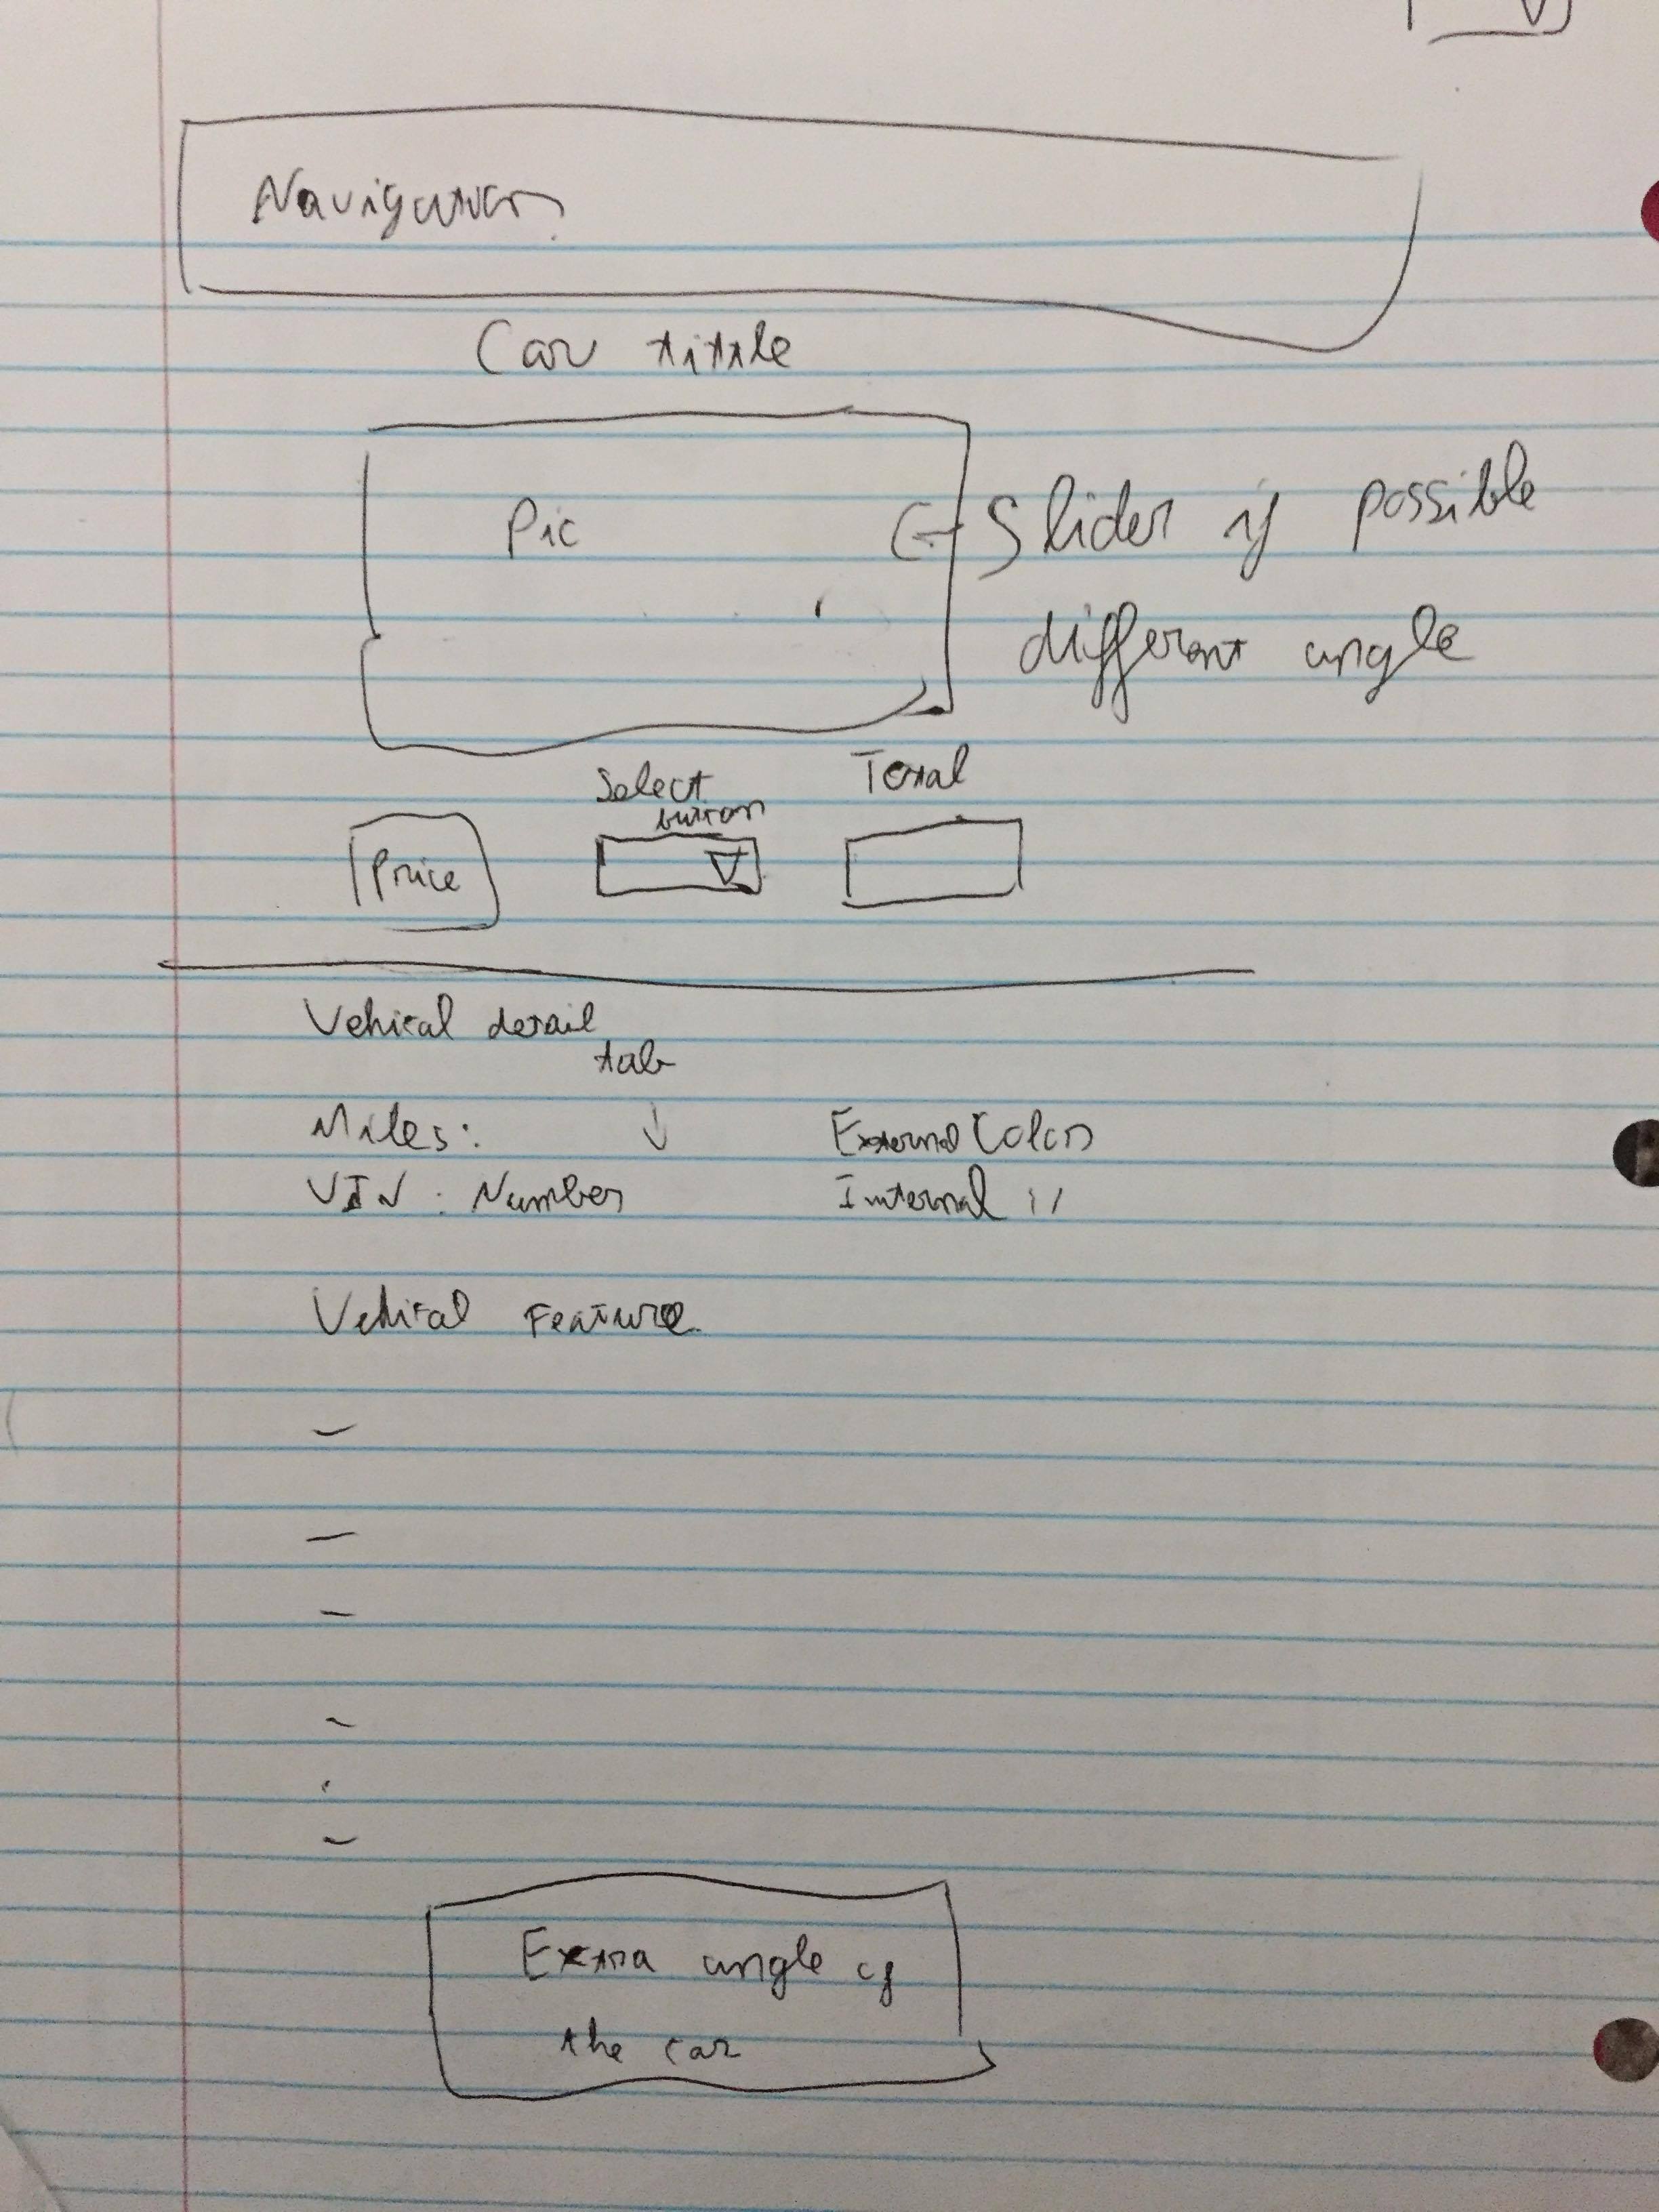 Navigation
Car tittle
Pic ← Slider if possible
different angle
Select
button
Total
Price
Vehical detail
tab
Miles: ↓ External Color
VIN : Number Internal "
Vehical Feature
Extra angle of
the car